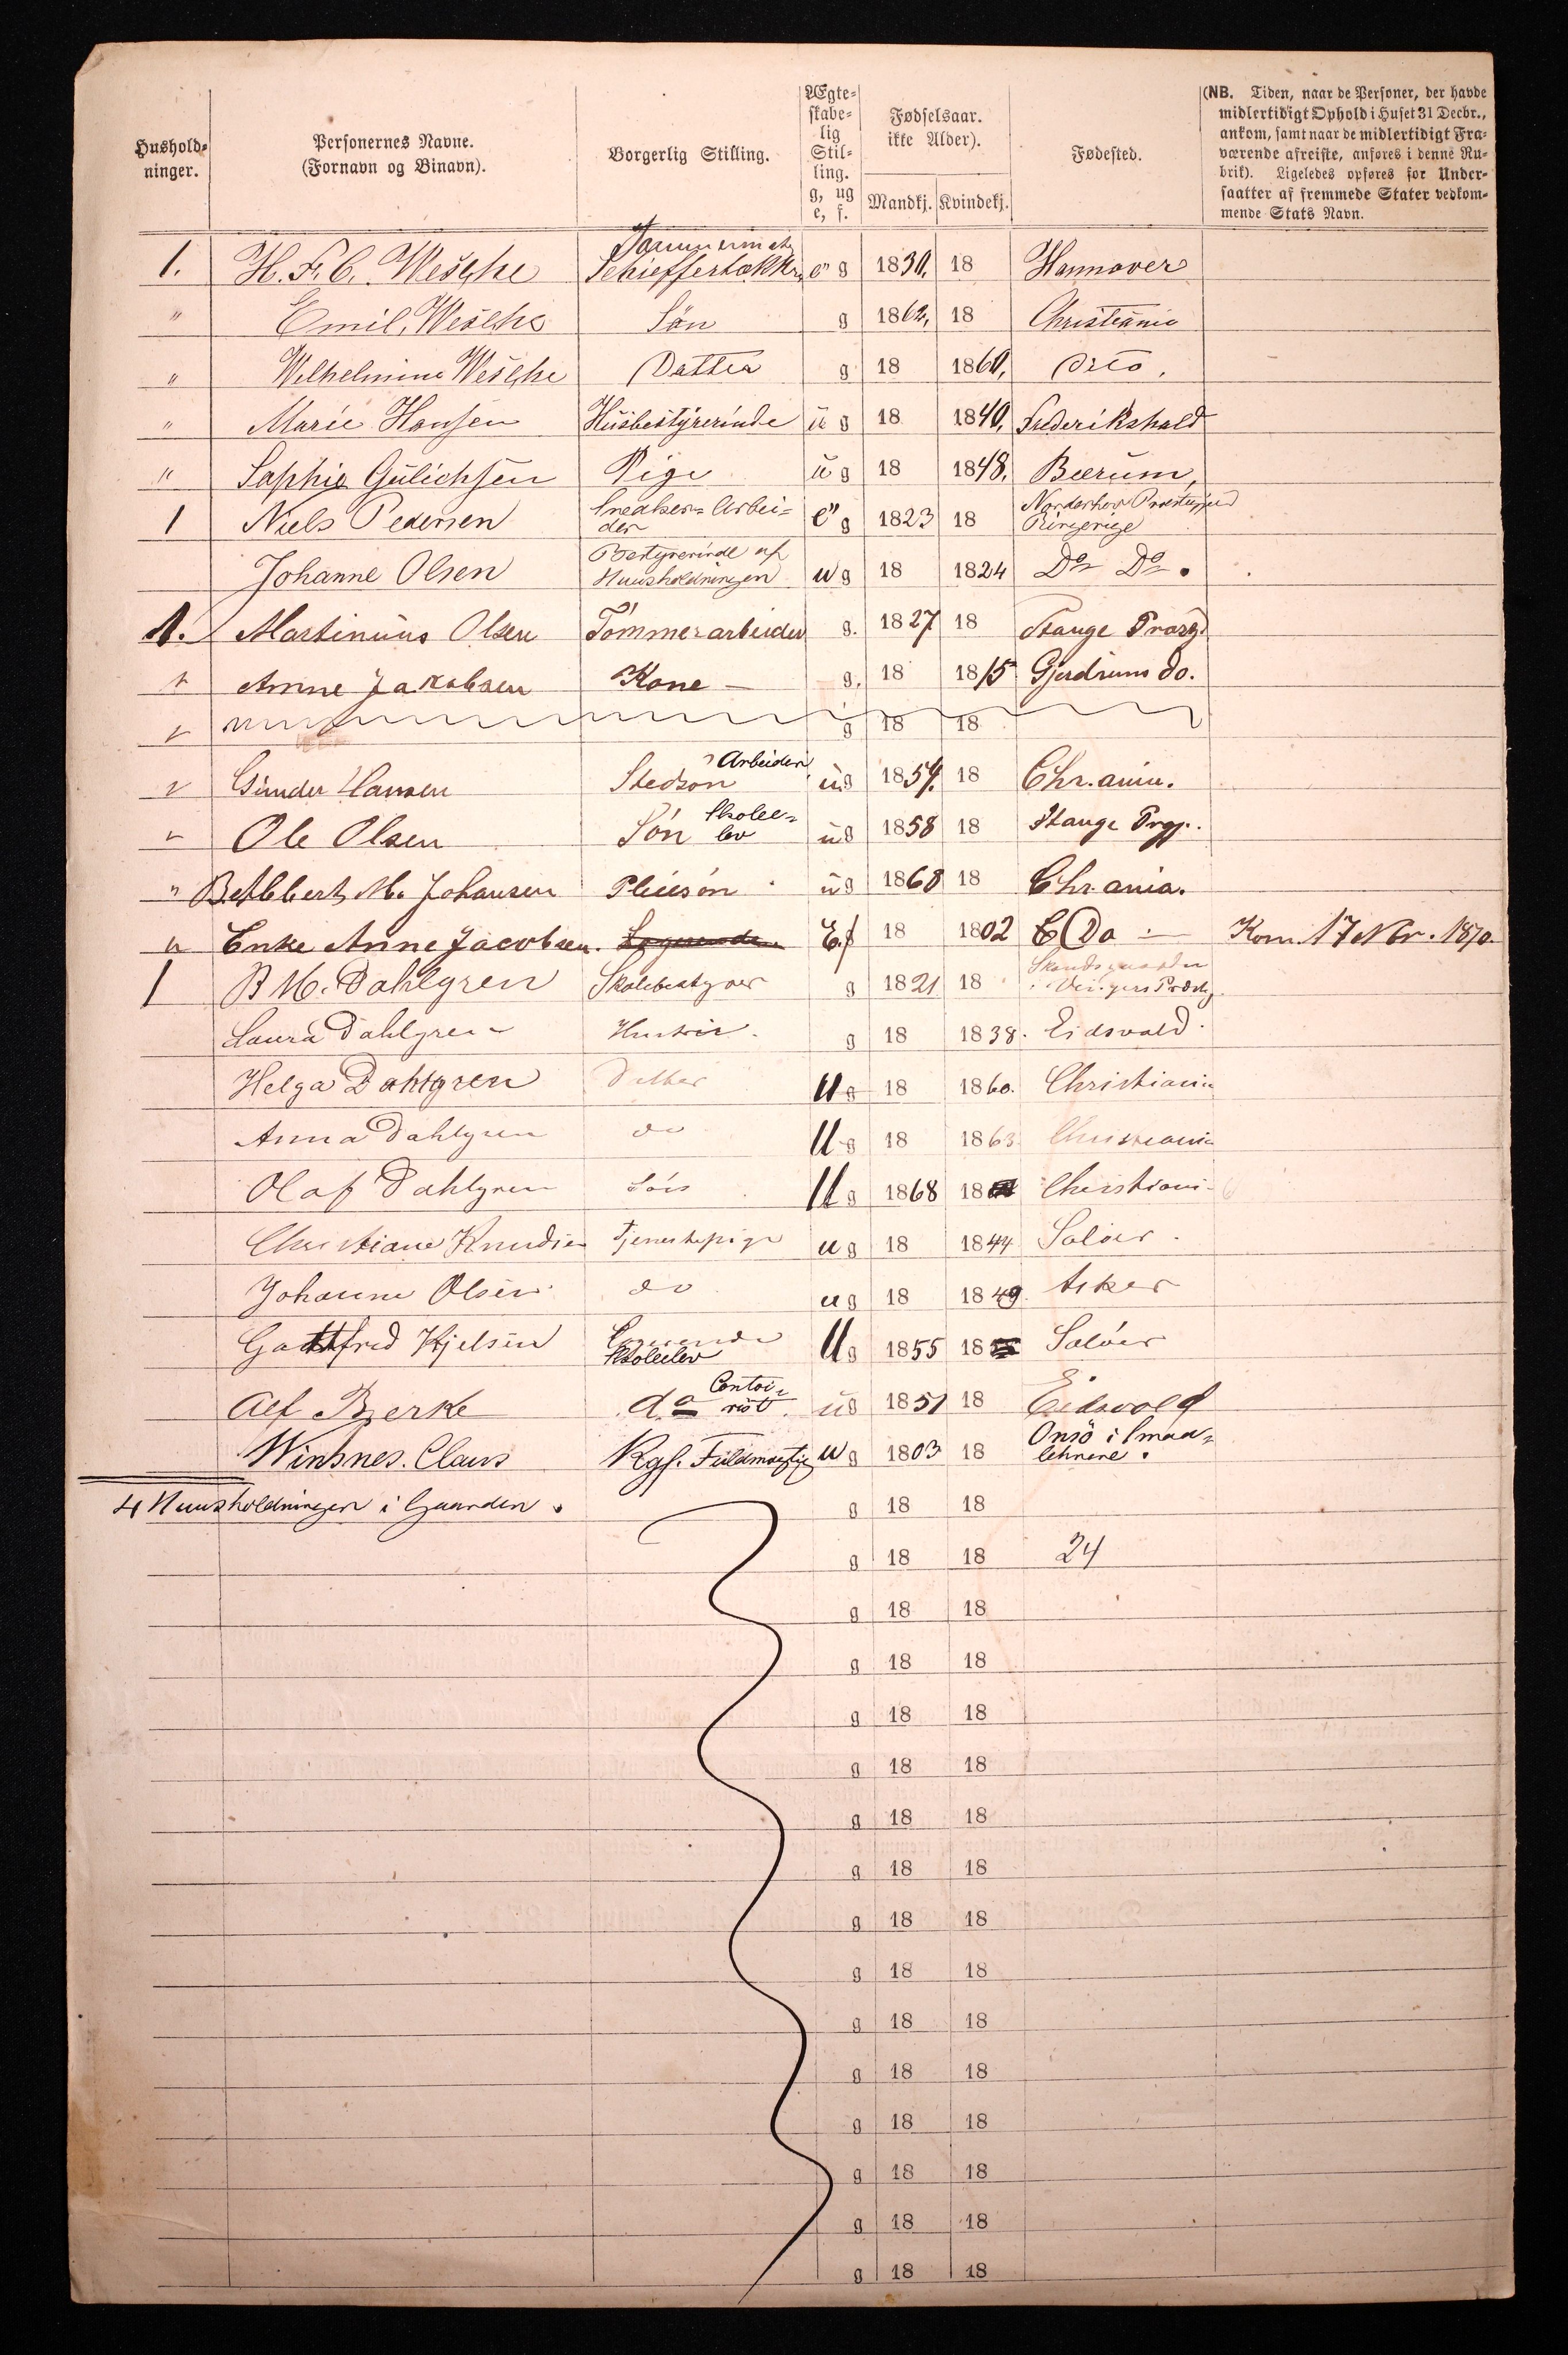 Hushold-
ninger.
Personernes Navne.
(Fornavn og Binavn).
Borgerlig Stilling.
Ægte-
skabe-
lig
Stil-
ling.
g, ug
e, f.
Fødselsaar.
ikke Alder).
Mandkj. Kvindekj.
Fødested.
(NB. Tiden, naar de Personer, der havde
midlertidigt Ophold i Huset 31 Decbr.,
ankom, samt naar de midlertidigt Fra-
værende afreiste, anføres i denne Ru-
brik). Ligeledes opføres for Under-
saatter af fremmede Stater vedkom-
mende Stats Navn.
1. H. F. C. Weschke e g 1830, 18 Hannover
" Emil, Weschke Sön g 1862, 18 Christiania
" Wilhelmine Weschke Datter g 18 1860, Dito.
" Marie Hansen Huisbestyrerinde u g 18 1840, Frederikshald
" Sophie Gulichsen Pige u g 18 1848, Bærum,
1 Niels Pedersen Snedker-Arbei-
der e g 1823 18 Norderhov Præstegjeld
Ringerige
Johanne Olsen Bestyrerinde af
Huusholdningen u g 18 1824 Do Do.
1. Martinius Olsen Tømmerarbeider g. 1827 18 Stange
" Anne Jakobsen Kone — g. 18 1815 Gjerdrum do.
" g 18 18
" Gunder Hansen Stedsøn Arbeider u g 1854. 18 Chr.ania.
" Ole Olsen Søn Skolee-
lev u g 1858 18 Stange Prgj.
" M. Johansen Pleiesøn u g 1868 18 Chr.ania.
" Enke Anne Jacobsen. Logerende E.f 18 1802 Do Kom. 17 Nbr. 1870.
1 B M. Dahlgren Skolebestyrer g 1821 18
Laura Dahlgren Hustru. g 18 1838. Eidsvold
Helga Dahlgren Datter U g 18 1860. Christiania
Anna Dahlgren do U g 18 1863. Christiania
Olaf Dahlgren Søn U g 1868 18 Christiania
Christiane Knudsen Tjenestepige u g 18 1844 Soløer.
Johanne Olsen do u g 18 1849. Asker
Gottfred Kjelsen Logerende
Skoleelev U g 1855 18 Soløer
Alf Bjerke do Contoi-
rist u g 1851 18 Eidsvold
Winsnes. Claus Kgs. Fuldmægtig u g 1803 18 Onsö i Smaa-
lehnene.
4 Huusholdninger i Gaarden. g 18 18
g 18 18 24
g 18 18
g 18 18
g 18 18
g 18 18
g 18 18
g 18 18
g 18 18
g 18 18
g 18 18
g 18 18
g 18 18
g 18 18
g 18 18
g 18 18